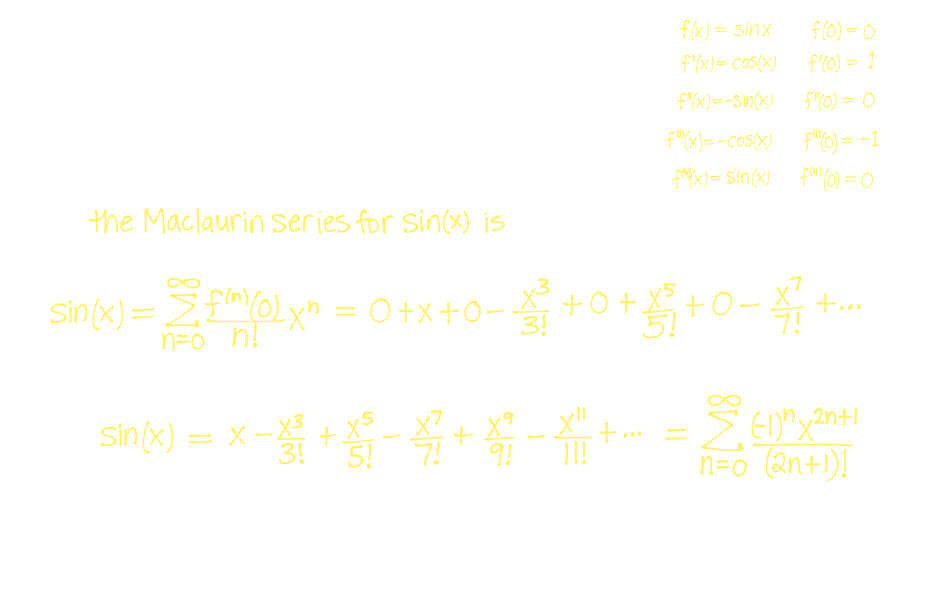 f(x) = sinx f(0) = 0
f'(x) = cos(x) f'(0) = 1
f''(x) = -sin(x) f''(0) = 0
f'''(x) = -cos(x) f'''(0) = -1
f⁽⁴⁾(x) = sin(x) f⁽⁴⁾(0) = 0
the Maclaurin series for sin(x) is
sin(x) = ∑_{n=0}^{∞} \frac{f^{(n)}(0)}{n!} x^n = 0 + x + 0 - \frac{x^3}{3!} + 0 + \frac{x^5}{5!} + 0 - \frac{x^7}{7!} + ...
sin(x) = x - \frac{x^3}{3!} + \frac{x^5}{5!} - \frac{x^7}{7!} + \frac{x^9}{9!} - \frac{x^{11}}{11!} + ... = ∑_{n=0}^{∞} \frac{(-1)^n x^{2n+1}}{(2n+1)!}